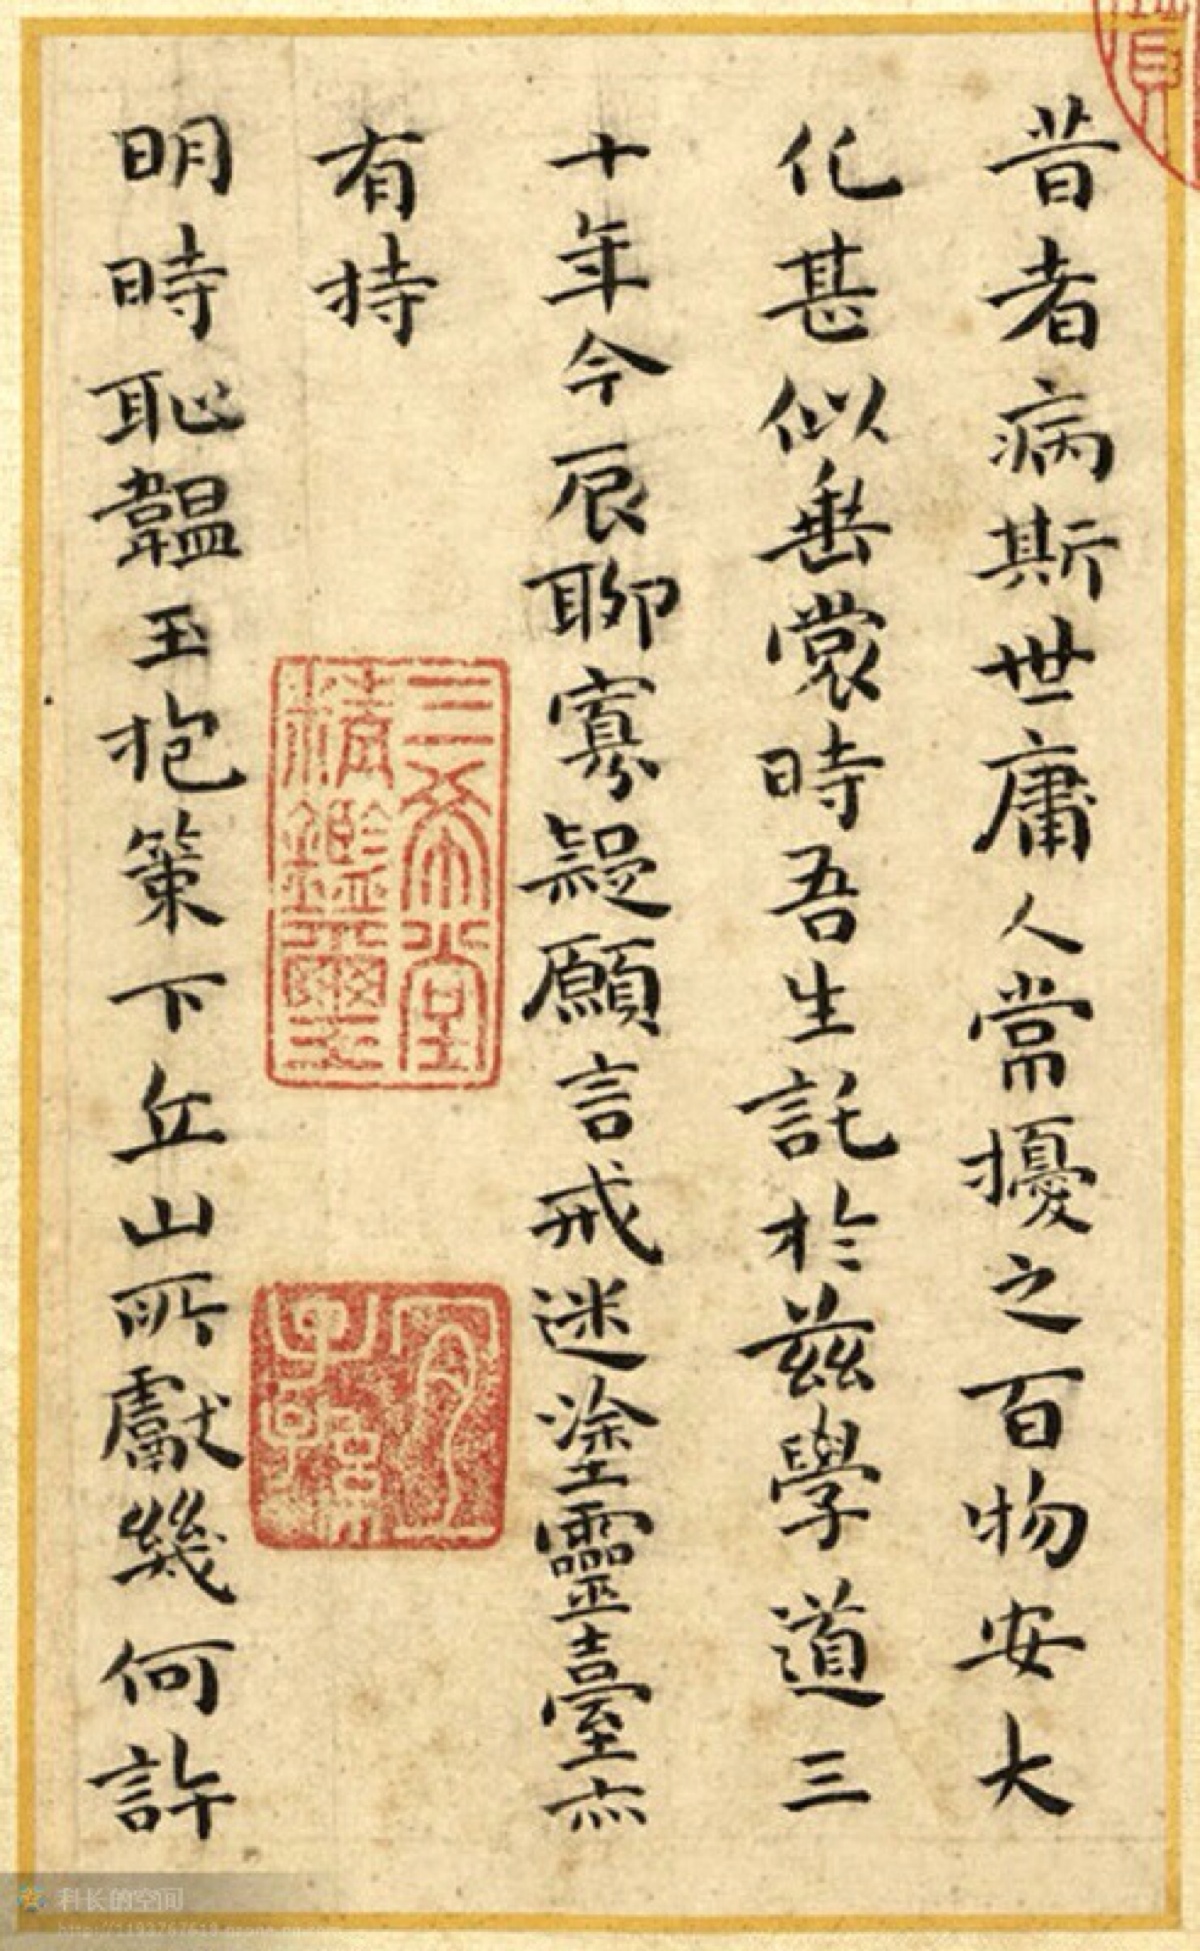 昔者病斯世庸人當擾之百物安大
化甚似垂裳時吾生託於茲學道三
十年今辰聊寡疑願言戒迷塗靈臺亦
有持
明時恥韞玉抱策下丘山所獻幾何許
三希堂
精鑑璽
子孫
科长的空间